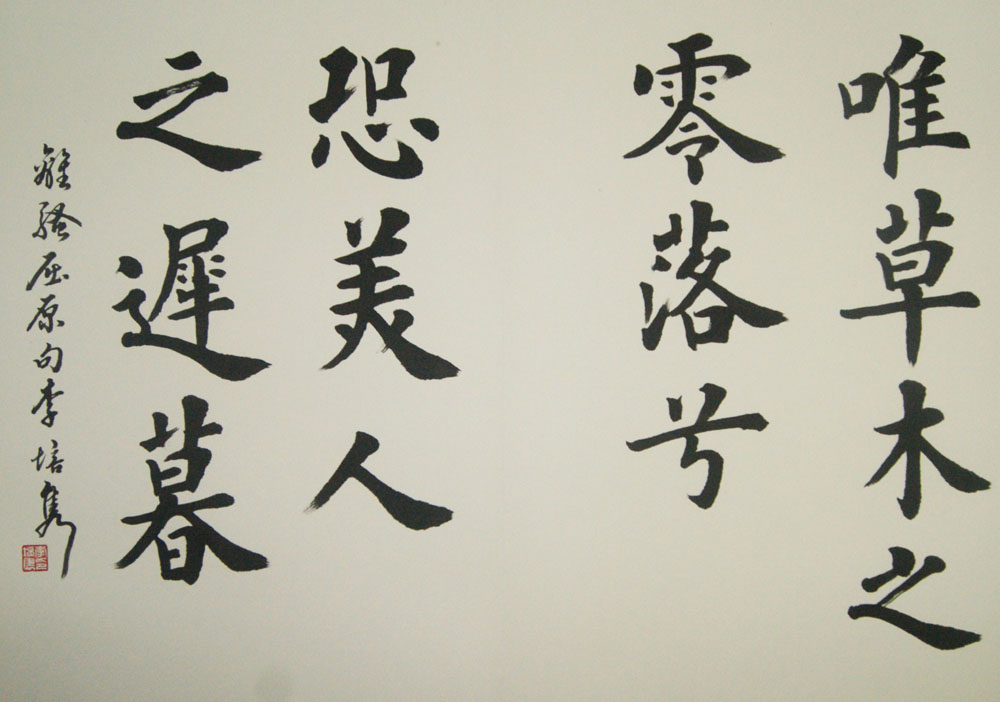 唯草木之
零落兮
恐美人
之遲暮
離騷屈原句李培隽